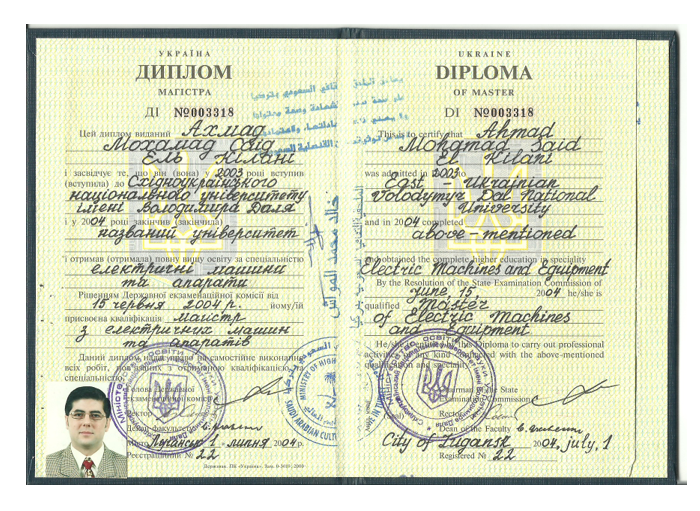 УКРАЇНА
ДИПЛОМ
МАГІСТРА
ДІ №003318
Цей диплом виданий Ахмад
Мохамад Саід
Ель Кілані
і засвідчує те, що він (вона) у 2003 році вступив
(вступила) до Східноукраїнського
національного університету
імені Володимира Даля
і у 2004 році закінчив (закінчила)
названий університет
і отримав (отримала) повну вищу освіту за спеціальністю
електричні машини
та апарати
Рішенням Державної екзаменаційної комісії від
15 червня 2004 р. йому/їй
присвоєна кваліфікація магістр
з електричних машин
та апаратів
Даний диплом дає право на самостійне виконання
всіх робіт, пов'язаних з отриманою кваліфікацією та
спеціальністю
Голова Державної
екзаменаційної комісії
Ректор
Декан факультету
Місто Луганськ 1 липня 2004 р.
Реєстраційний № 22
UKRAINE
DIPLOMA
OF MASTER
DI №003318
This is to certify that Ahmad
Mohamad Said
El Kilani
was admitted in 2003 to
East - Ukrainian
Volodymyr Dal National
University
and in 2004 completed
above-mentioned
and obtained the complete higher education in speciality
Electric Machines and Equipment
By the Resolution of the State Examination Commission of
june, 15, 2004 he/she is
qualified Master
of Electric Machines
and Equipment
He/she is entitled by this Diploma to carry out professional
activities of any kind connected with the above-mentioned
qualification and speciality
Chairman of the State
Examination Commission
(seal) Rector
Dean of the Faculty
City of Lugansk 2004, july, 1
Registered № 22
MINISTRY OF HIGH
SAUDI ARABIAN CULT
خالد محمد العواس